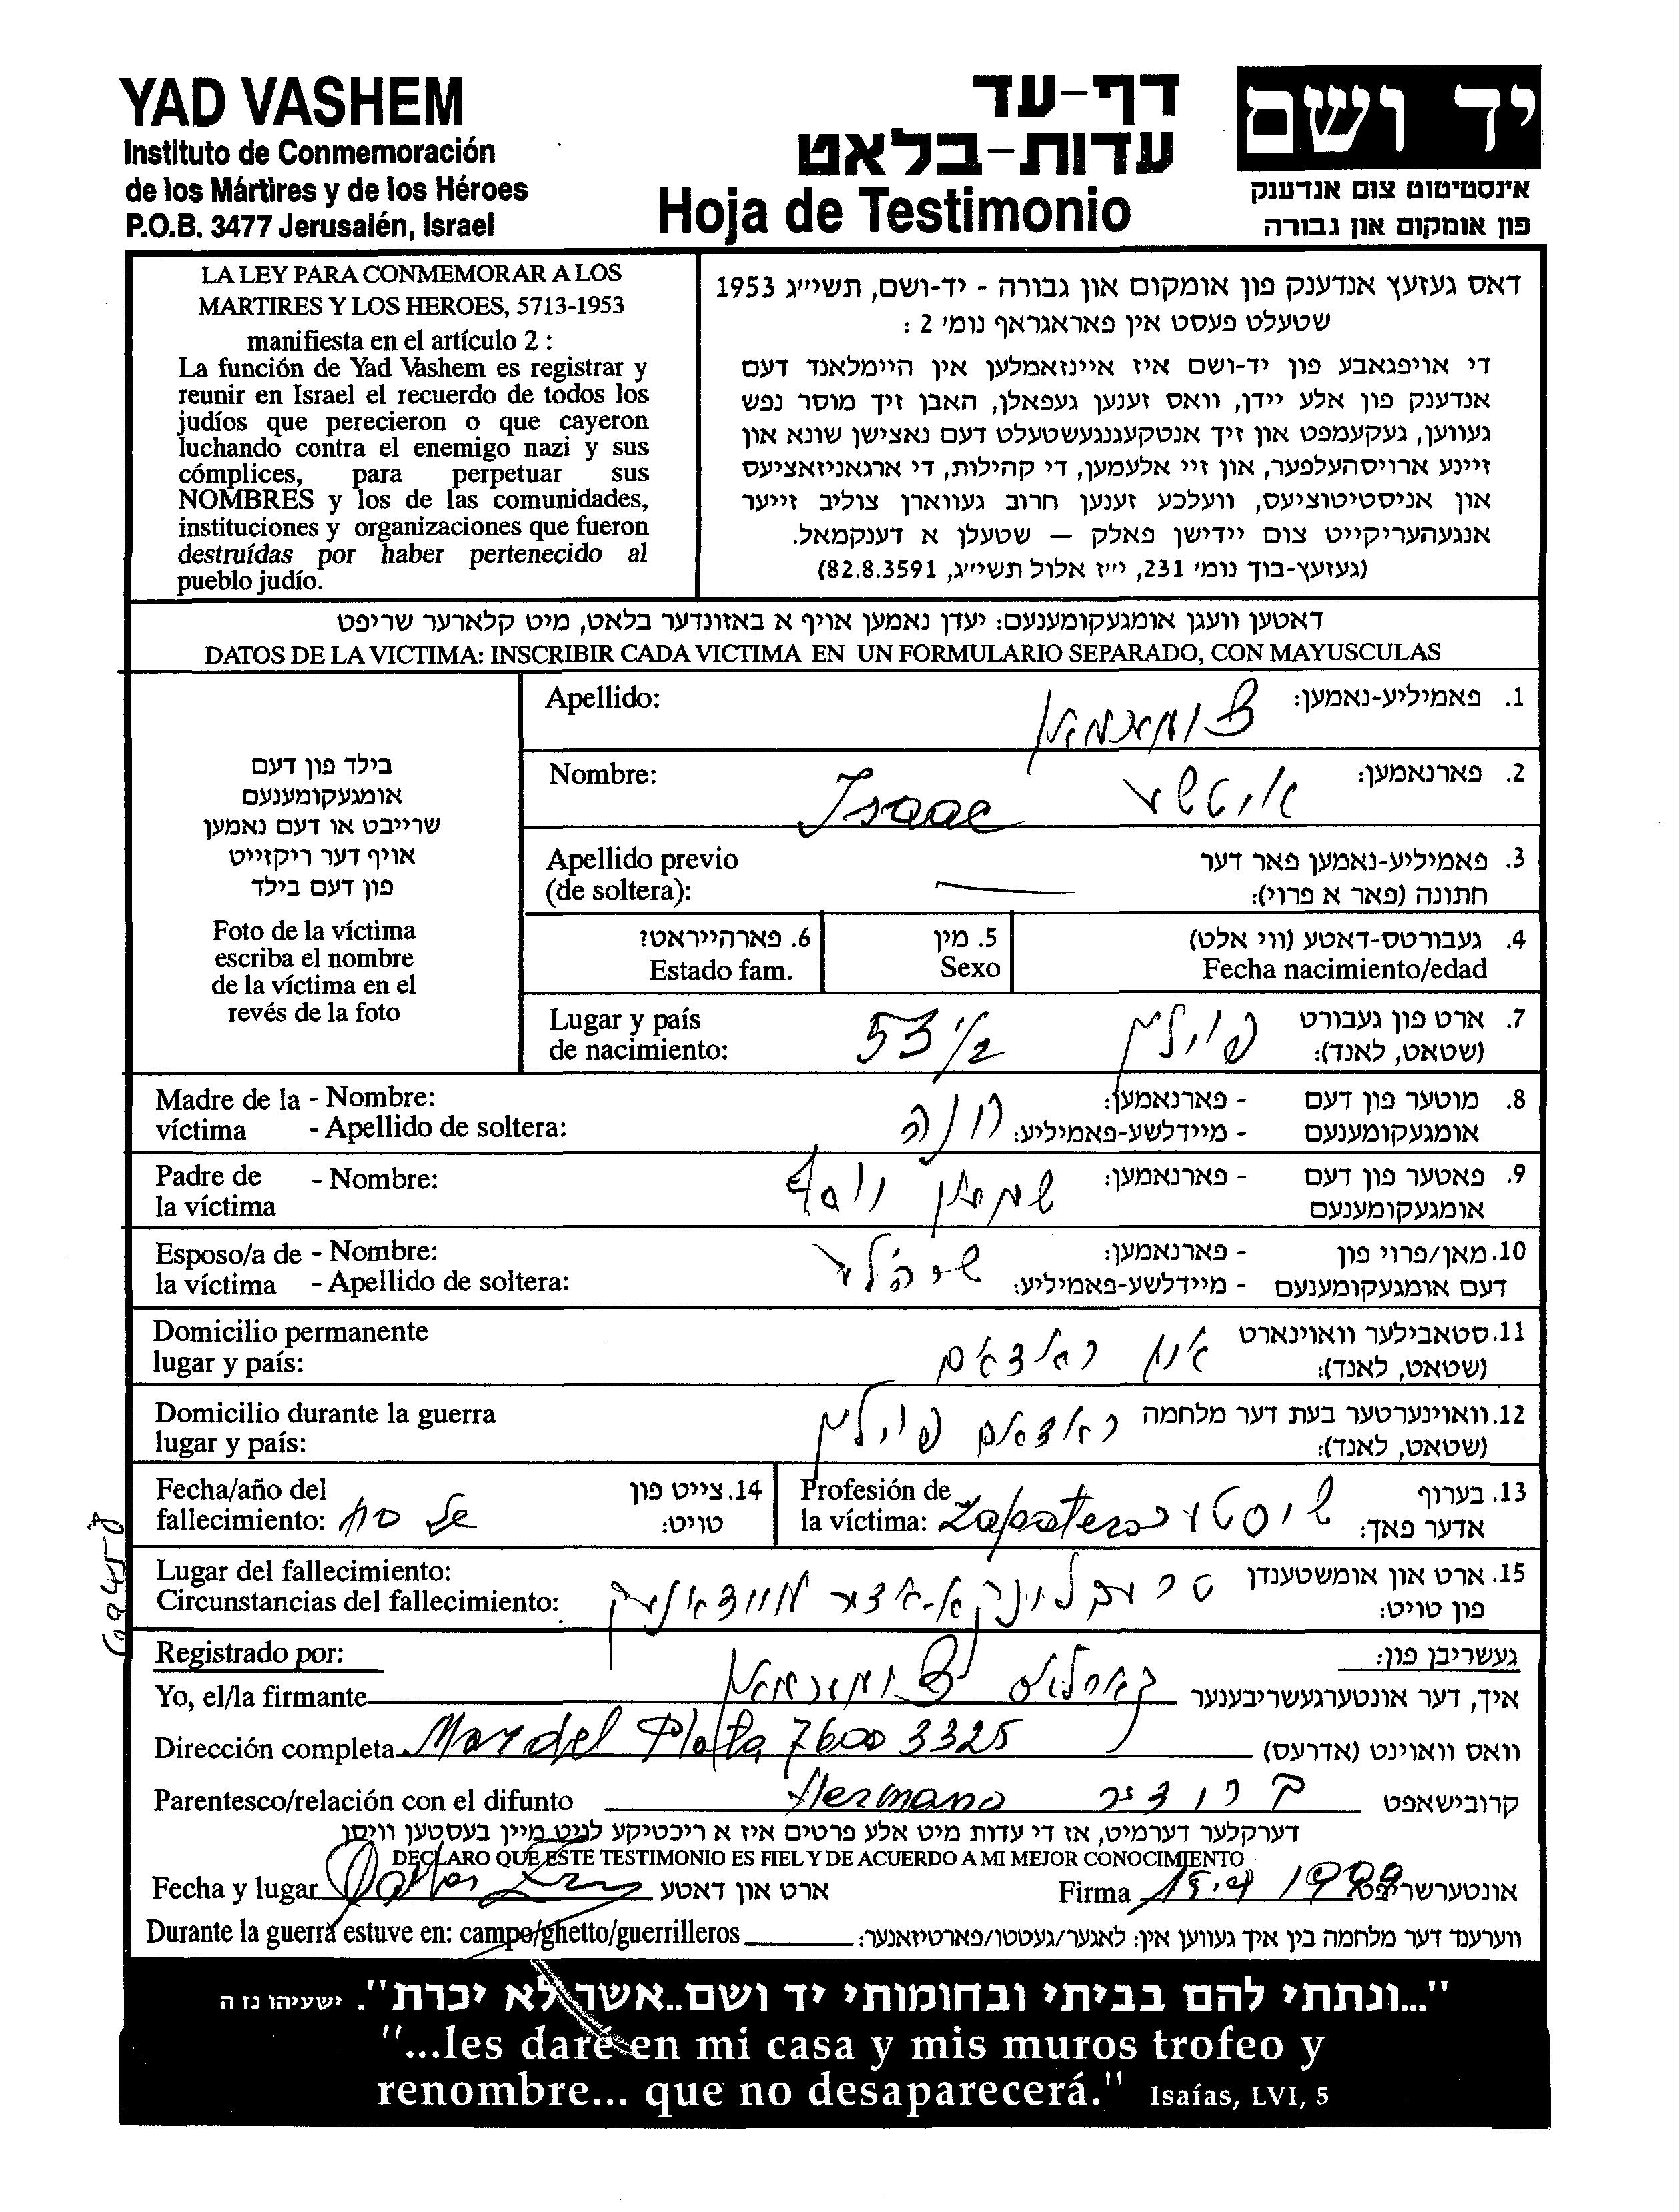 YAD VASHEM
Instituto de Conmemoración
de los Mártires y de los Héroes
P.O.B. 3477 Jerusalén, Israel
דף-עד
עדות-בלאט
Hoja de Testimonio
יד ושם
אינסטיטוט צום אנדענק
פון אומקום און גבורה
LA LEY PARA CONMEMORAR A LOS
MARTIRES Y LOS HEROES, 5713-1953
manifiesta en el artículo 2 :
La función de Yad Vashem es registrar y
reunir en Israel el recuerdo de todos los
judíos que perecieron o que cayeron
luchando contra el enemigo nazi y sus
cómplices, para perpetuar sus
NOMBRES y los de las comunidades,
instituciones y organizaciones que fueron
destruídas por haber pertenecido al
pueblo judío.
דאס געזעץ אנדענק פון אומקום און גבורה - יד-ושם, תשי״ג 1953
שטעלט פעסט אין פאראגראף נומ׳ 2 :
די אויפגאבע פון יד-ושם איז איינזאמלען אין היימלאנד דעם
אנדענק פון אלע יידן, וואס זענען געפאלן, האבן זיך מוסר נפש
געווען, געקעמפט און זיך אנטקעגנגעשטעלט דעם נאצישן שונא און
זיינע ארויסהעלפער, און זיי אלעמען, די קהילות, די ארגאניזאציעס
און אניסטיטוציעס, וועלכע זענען חרוב געווארן צוליב זייער
אנגעהעריקייט צום יידישן פאלק — שטעלן א דענקמאל.
(געזעץ-בוך נומ׳ 231, י״ז אלול תשי״ג, 82.8.3591)
דאטען וועגן אומגעקומענעם: יעדן נאמען אויף א באזונדער בלאט, מיט קלארער שריפט
DATOS DE LA VICTIMA: INSCRIBIR CADA VICTIMA EN UN FORMULARIO SEPARADO, CON MAYUSCULAS
בילד פון דעם
אומגעקומענעם
שרייבט או דעם נאמען
אויף דער ריקזייט
פון דעם בילד
Foto de la víctima
escriba el nombre
de la víctima en el
revés de la foto
1. פאמיליע-נאמען:
Apellido:
2. פארנאמען: איטשע
Nombre: Isaac
3. פאמיליע-נאמען פאר דער
חתונה (פאר א פרוי):
Apellido previo
(de soltera):
4. געבורטס-דאטע (ווי אלט)
Fecha nacimiento/edad
5. מין
Sexo
6. פארהייראט?
Estado fam.
7. ארט פון געבורט
(שטאט, לאנד): פוילן
Lugar y país
de nacimiento: 53 1/2
8. מוטער פון דעם - פארנאמען:
אומגעקומענעם - מיידלשע-פאמיליע: חנה
Madre de la - Nombre:
víctima - Apellido de soltera:
9. פאטער פון דעם - פארנאמען:
אומגעקומענעם
שמעון יוסף
Padre de - Nombre:
la víctima
10. מאן/פרוי פון - פארנאמען:
דעם אומגעקומענעם - מיידלשע-פאמיליע:
Esposo/a de - Nombre:
la víctima - Apellido de soltera:
11. סטאבילער וואוינארט
(שטאט, לאנד): אין ראדאם
Domicilio permanente
lugar y país:
12. וואוינערטער בעת דער מלחמה
(שטאט, לאנד): ראדאם פוילן
Domicilio durante la guerra
lugar y país:
13. בערוף
אדער פאך: שוסטער
Profesión de
la víctima: Zapatero
14. צייט פון
טויט:
Fecha/año del
fallecimiento:
15. ארט און אומשטענדן
פון טויט: טרעבלינקא-אדער מיידאנעק
Lugar del fallecimiento:
Circunstancias del fallecimiento:
6945-8
געשריבן פון:
Registrado por:
איך, דער אונטערגעשריבענער
Yo, el/la firmante
וואס וואוינט (אדרעס)
Dirección completa Mar del Plata 7600 3325
קרובישאפט ברודער
Parentesco/relación con el difunto Hermano
דערקלער דערמיט, אז די עדות מיט אלע פרטים איז א ריכטיקע לויט מיין בעסטען וויסן
DECLARO QUE ESTE TESTIMONIO ES FIEL Y DE ACUERDO A MI MEJOR CONOCIMIENTO
Fecha y lugar ארט און דאטע
Firma 1999 אונטערשריפט
Durante la guerra estuve en: campo/ghetto/guerrilleros
ווערענד דער מלחמה בין איך געווען אין: לאגער/געטטו/פארטיזאנער:
"...ונתתי להם בביתי ובחומותי יד ושם..אשר לא יכרת". ישעיהו נז ה
"...les daré en mi casa y mis muros trofeo y
renombre... que no desaparecerá." Isaías, LVI, 5